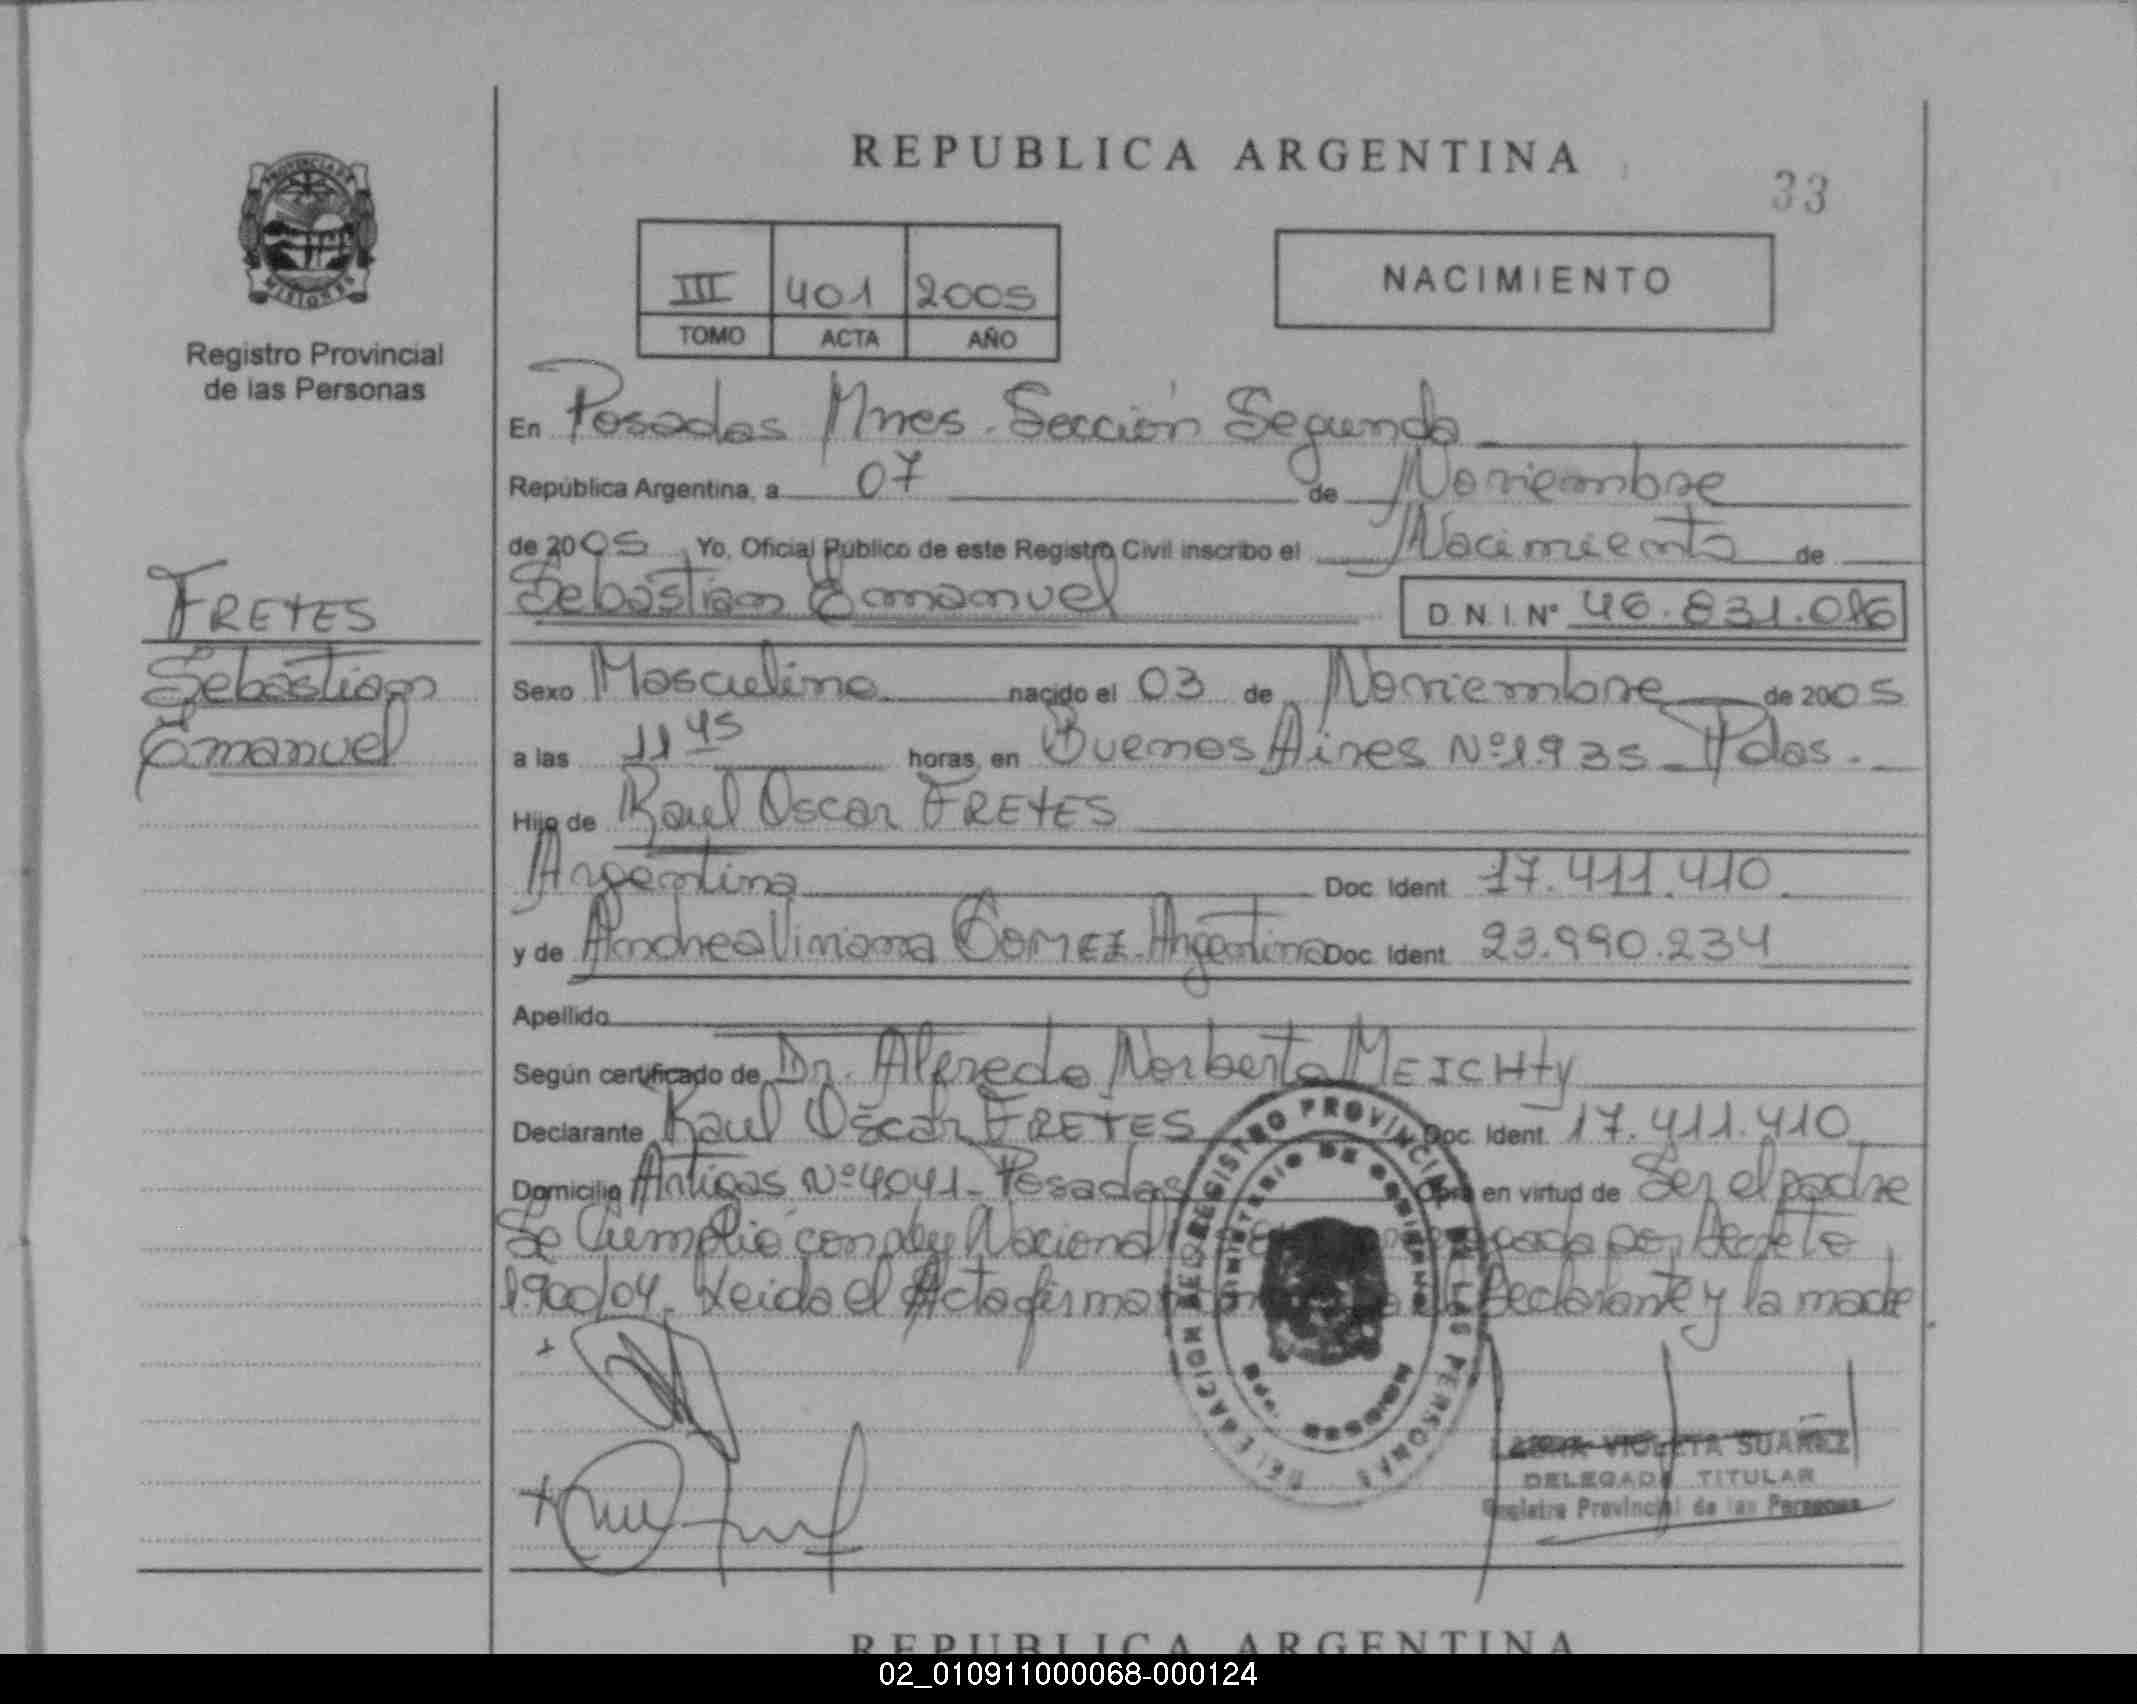 REPUBLICA ARGENTINA
33
PROVINCIA DE
MISIONES
Registro Provincial
de las Personas
III 401 2005
TOMO ACTA AÑO
NACIMIENTO
En Posadas Mnes. Sección Segunda
República Argentina, a 07 de Noviembre
de 2005 Yo, Oficial Público de este Registro Civil inscribo el Nacimiento de
Sebastian Emanuel
D N. I. N° 46.831.016
FRETES
Sebastian
Emanuel
Sexo Masculino nacido el 03 de Noviembre de 2005
a las 11 45 horas, en Buenos Aires Nº 1935 - Pdas.
Hijo de Raul Oscar FRETES
Argentina Doc. Ident. 17.411.410
y de Andrea Viviana GOMEZ. Argentina Doc. Ident. 23.990.234
Apellido
Según certificado de Dr. Alfredo Norberto MEICHTY
Declarante Raul Oscar FRETES Doc. Ident. 17.411.410
Domicilio Artigas Nº 4041 - Posadas Obra en virtud de Ser el padre
Se Cumplió con ley Nacional por Decreto
1900/04. Leida el Acta firman Declarante y la madre
REGISTRO PROVINCIAL DE LAS PERSONAS
MINISTERIO DE GOBIERNO
VIOLETA SUAREZ
DELEGADA TITULAR
Registro Provincial de las Personas
REPUBLICA ARGENTINA
02_010911000068-000124